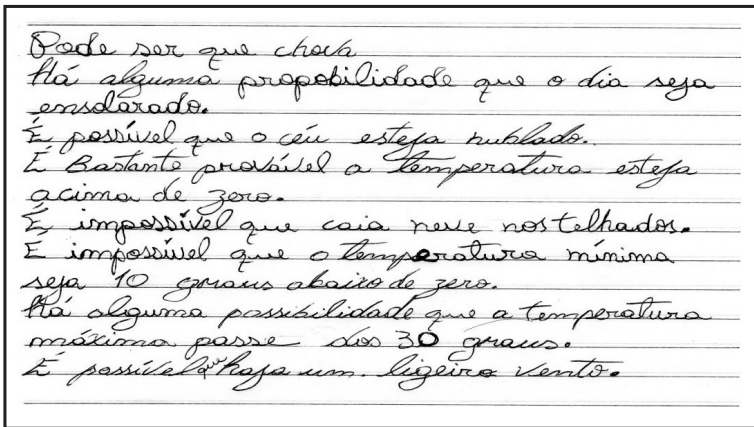 Pode ser que chova
Há alguma propobilidade que o dia seja
ensolarado.
É possível que o céu esteja nublado.
É Bastante provável a temperatura esteja
acima de zero.
É impossível que caia neve nos telhados.
É impossível que o temperatura mínima
seja 10 graus abaixo de zero.
Há alguma possibilidade que a temperatura
máxima passe dos 30 graus.
É possível que haja um ligeiro vento.